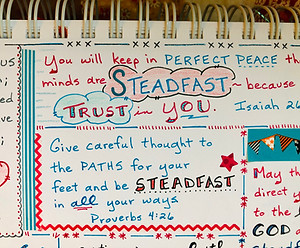 You will keep in PERFECT PEACE
minds are STEADFAST ~ because
TRUST in YOU.
Isaiah 26
Give careful thought to
the PATHS for your
feet and be STEADFAST
in all your ways
Proverbs 4:26
May th
direct y
to the
GOD